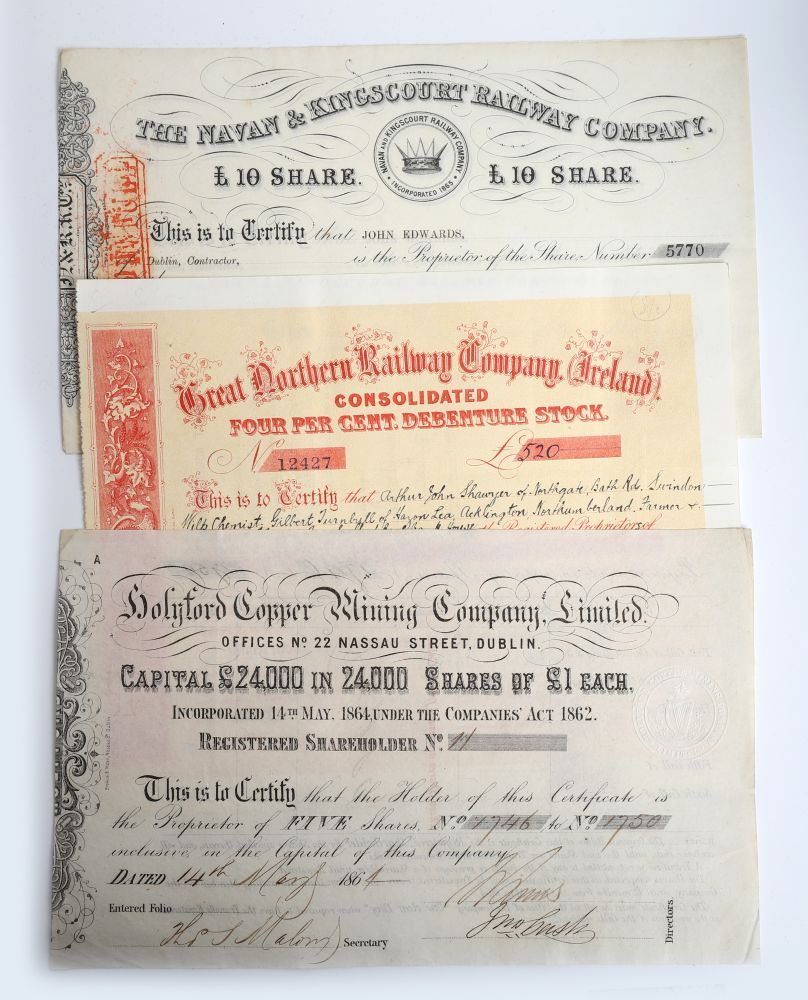 THE NAVAN & KINGSCOURT RAILWAY COMPANY.
£10 SHARE.
NAVAN AND KINGSCOURT RAILWAY COMPANY,
• INCORPORATED 1865 •
£10 SHARE.
This is to Certify that JOHN EDWARDS,
Dublin, Contractor, is the Proprietor of the Share, Number 5770
Great Northern Railway Company, (Ireland).
CONSOLIDATED
FOUR PER CENT. DEBENTURE STOCK.
No 12427 £520
This is to Certify that Arthur John Shawyer of Northgate, Bath Rd. Swindon
Wilts Chemist, Gilbert Turnbull of Acklington Northumberland, Farmer &
Registered Proprietors of
A
Holyford Copper Mining Company, Limited.
OFFICES No 22 NASSAU STREET, DUBLIN.
CAPITAL £24,000 IN 24,000 SHARES OF £1 EACH.
INCORPORATED 14TH MAY, 1864, UNDER THE COMPANIES' ACT 1862.
REGISTERED SHAREHOLDER No 11
This is to Certify that the Holder of this Certificate is
the Proprietor of FIVE Shares, No 1746 to No 1750
inclusive, in the Capital of this Company
DATED 14th May 1864
Entered Folio
Thos S Malony Secretary
Jno Cash
Directors